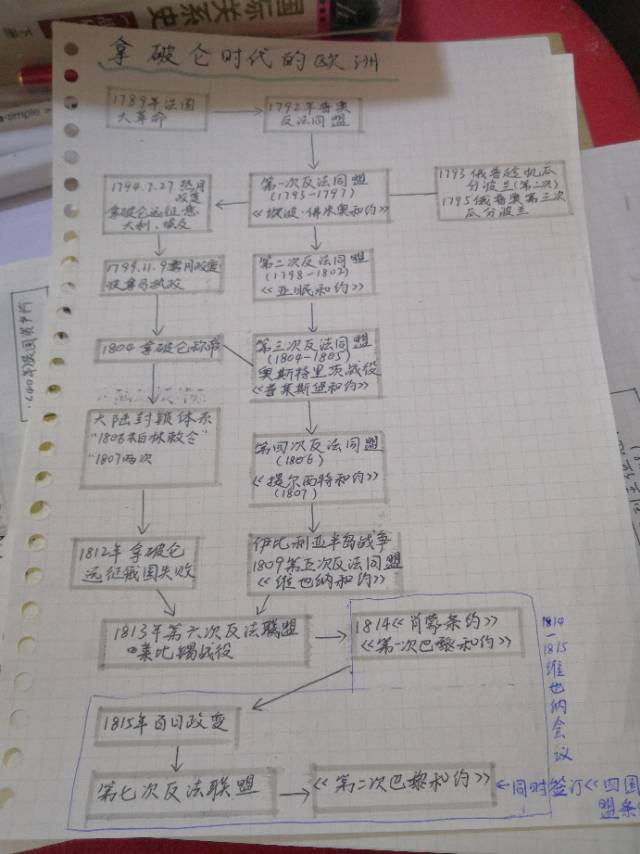 国际关系史
下册
simple
拿破仑时代的欧洲
1789年法国
大革命
1792年普奥
反法同盟
1794.7.27 热月
政变
拿破仑远征意
大利、埃及
第一次反法同盟
(1793-1797)
《坎波·佛米奥和约》
1793 俄普
分波兰(第二次)
1795俄普奥第三次
瓜分波兰
1799.11.9雾月政变
执政
第二次反法同盟
(1798-1802)
《亚眠和约》
1804 拿破仑称帝
第三次反法同盟
(1804-1805)
奥斯特里茨战役
《普莱斯堡和约》
大陆封锁体系
"1806柏林敕令"
"1807两次
第四次反法同盟
(1806)
《提尔西特和约》
(1807)
1812年拿破仑
远征俄国失败
伊比利亚半岛战争
1809第五次反法同盟
《维也纳和约》
1813年第六次反法联盟
莱比锡战役
1814《肖蒙条约》
《第一次巴黎和约》
1814-1815维也纳会议
1815年百日政变
第七次反法联盟
《第二次巴黎和约》
同时签订《四国
盟条